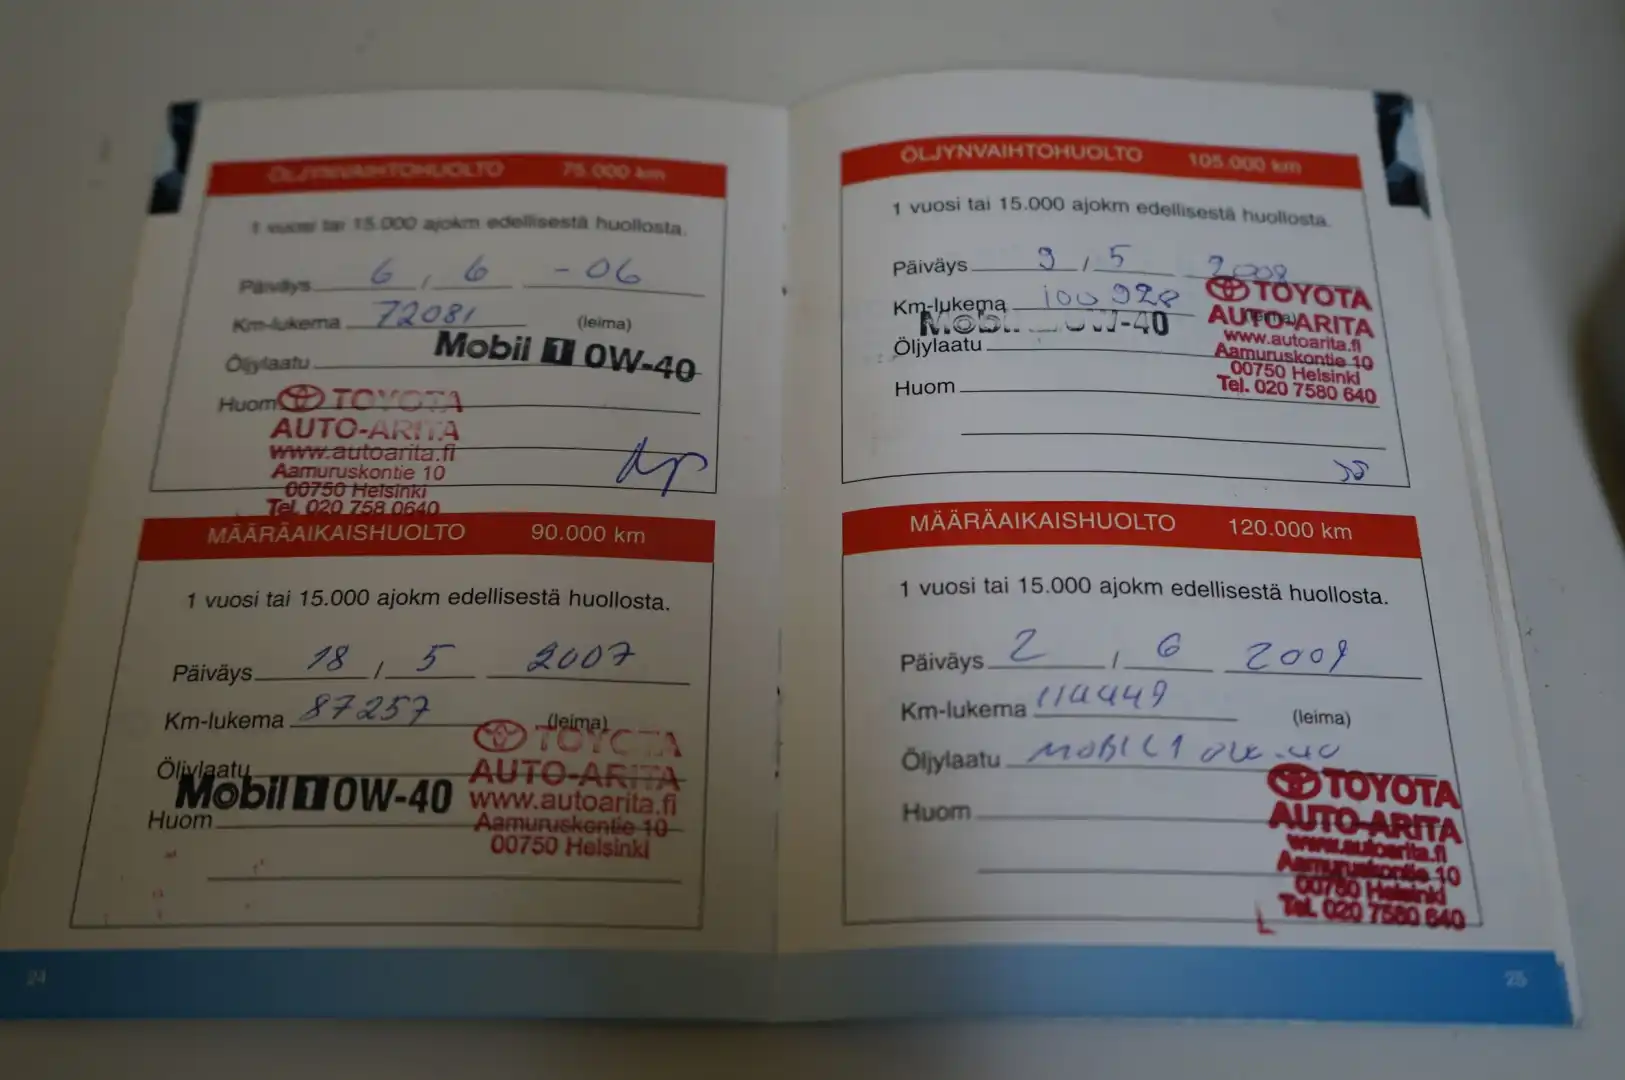 ÖLJYNVAIHTOHUOLTO 75.000 km
1 vuosi tai 15.000 ajokm edellisestä huollosta.
Päiväys 6 / 6 -06
Km-lukema 72081 (leima)
Öljylaatu Mobil 1 0W-40
Huom
TOYOTA
AUTO-ARITA
www.autoarita.fi
Aamuruskontie 10
00750 Helsinki
Tel. 020 758 0640
MÄÄRÄAIKAISHUOLTO 90.000 km
1 vuosi tai 15.000 ajokm edellisestä huollosta.
Päiväys 18 / 5 2007
Km-lukema 87257 (leima)
Öljylaatu
Mobil 1 0W-40
Huom
TOYOTA
AUTO-ARITA
www.autoarita.fi
Aamuruskontie 10
00750 Helsinki
24
ÖLJYNVAIHTOHUOLTO 105.000 km
1 vuosi tai 15.000 ajokm edellisestä huollosta.
Päiväys 9 / 5 2008
Km-lukema 100928 (leima)
Mobil 1 0W-40
Öljylaatu
Huom
TOYOTA
AUTO-ARITA
www.autoarita.fi
Aamuruskontie 10
00750 Helsinki
Tel. 020 7580 640
MÄÄRÄAIKAISHUOLTO 120.000 km
1 vuosi tai 15.000 ajokm edellisestä huollosta.
Päiväys 2 / 6 2009
Km-lukema 114449 (leima)
Öljylaatu MOBIL 1 0W-40
Huom
TOYOTA
AUTO-ARITA
www.autoarita.fi
Aamuruskontie 10
00750 Helsinki
Tel. 020 7580 640
25